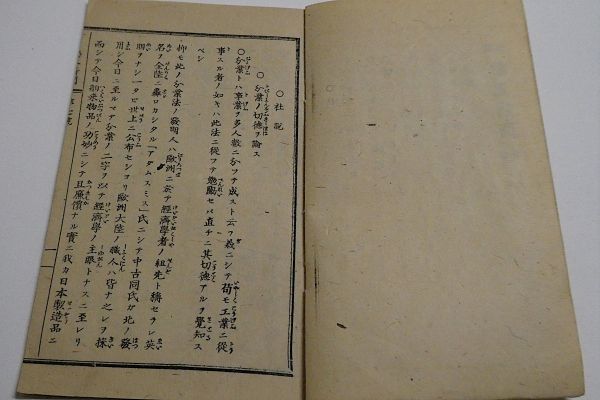 ○社説
○分業ノ切徳ヲ論ス
○分業トハ事業ヲ多人数ニ分ツテ成スト云フ義ニシテ苟モ工業ニ從
事スル者ノ如キハ此法ニ從フテ勉勵セバ直チニ其切徳アルヲ覺知ス
ベシ
抑モ此ノ分業法ノ發明人ハ歐洲ニ於テ經濟學者ノ組先ト稱セラレ英
名ヲ全陸ニ轟ロカシタル「アダムスミス」氏ニシテ中古同氏ガ此ノ發
明ヲナシータビ世上ニ公布セシヨリ歐洲大陸ノ職人ハ皆ナ之レヲ採
用シ今日ニ至ルマデ分業ノ二字ヲ以テ經濟學ノ主眼トナスニ至レリ
而シテ今日舶来物品ノ功妙ニシテ且廉價ナル實ニ我カ日本製造品ニ